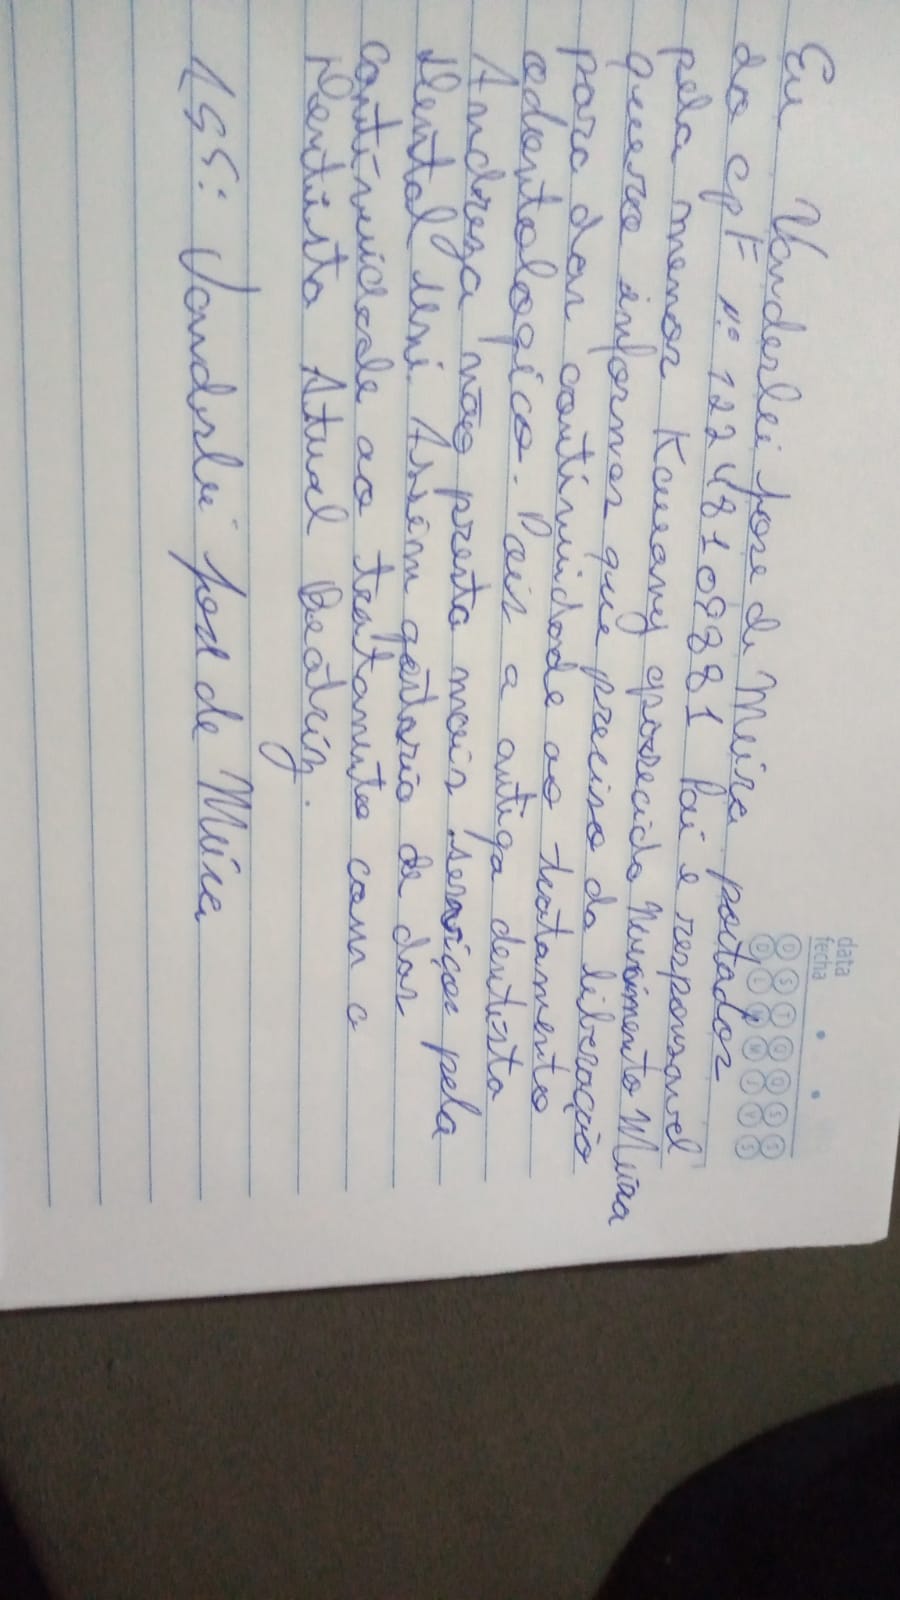 data
fecha
D S T Q Q S S
D L M M J V S
Eu Vanderlei jose de Meira portador
do cpF n° 122 481 098 81 Pai e responsavel
pela menor Kauany aparecida Nascimento Meira
quero informar que preciso da liberação
para dar continuidade ao tratamento
odontologico. Pois a antiga dentista
Andreza não presta mais serviços pela
dental uni. Assim gostaria de dar
continuidade ao tratamento com a
Dentista Atual Beatriz.
ASS: Vanderlei jose de Meira